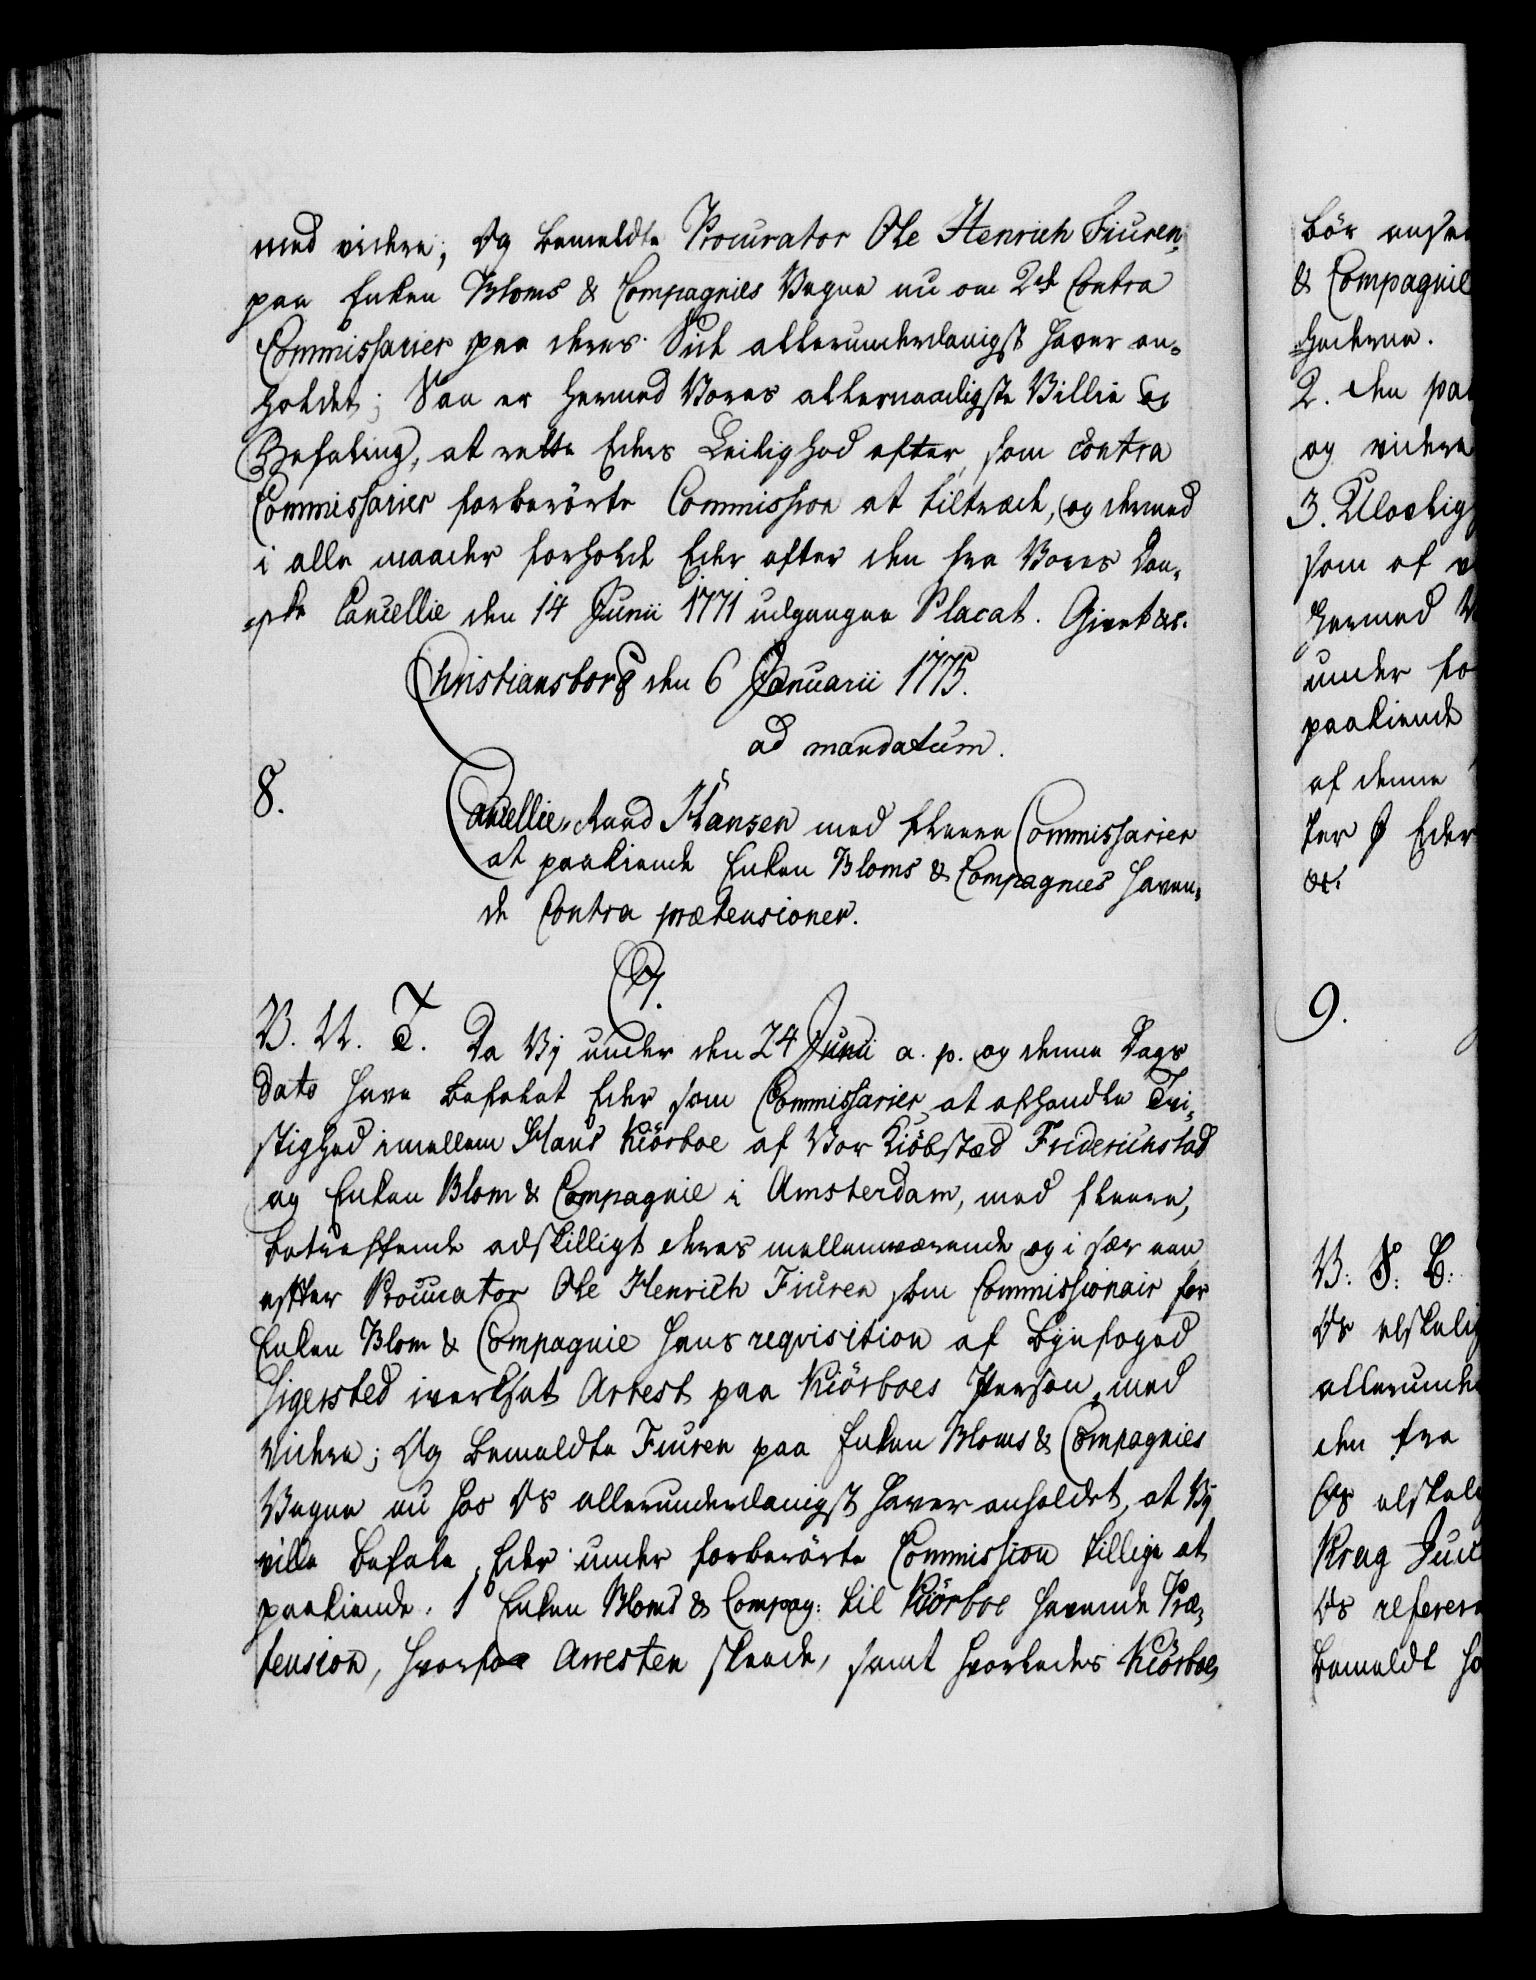 med videre; Og bemeldte Procurator Ole Henrich Fiuren,
paa Enken Bloms & Compagnies Vegne nu om 2de Contra
Commissarier paa deres Side allerunderdanigst haver an-
holdet; Saa er hermed Vores allernaadigste Villie og
Befaling, at rette Eders Leilighed efter, som Contra
Commissarier forberörte Commission at tiltræde, og dermed
i alle maader forholde Eder efter den fra Vores Dan-
ske Cancellie den 14 Junii 1771 udgangne Placat. Givet &c.
Christiansborg den 6 Januarii 1775.
ad mandatum.
8.
Cancellie-Raad Hansen med fleere Commissarier
at paakiende Enken Bloms & Compagnies haven-
de Contra prætensioner.
C7.
V. U. T. Da Vi under den 24 Junii a. p. og denne Dags
Dato have befalet Eder som Commissarier at afhandle Tvi-
stighed imellem Hans Kiörboe af Vor Kiöbstæd Friderichstad
og Enken Blom & Compagnie i Amsterdam, med fleere,
betreffende adskilligt deres mellemværende og i sær een
efter Procurator Ole Henrich Fiuren som Commissionair for
Enken Blom & Compagnie hans reqvisition af Byefoged
Sigersted iverksat Arrest paa Kiörboes Person, med
videre; Og bemeldte Fiuren paa Enken Bloms & Compagnies
Vegne nu hos Os allerunderdanigst haver anholdet, at Vi
ville befale, Eder under forberörte Commission tillige at
paakiende. 1o Enken Bloms & Compag: til Kiörboe havende Præ-
tension, hvorfor Arresten skeede, samt hvorledes Kiörboe,
bör ansee
& Compagnie
2. den paa
og videre
som af v
hermed V
under fo
paakiende
af denne
ter Eder
&c.
9.
V: S: B:
Os elskelig
allerunde
den fra
Os elskelig
Krag Jue
Os referere
bemeldt ha